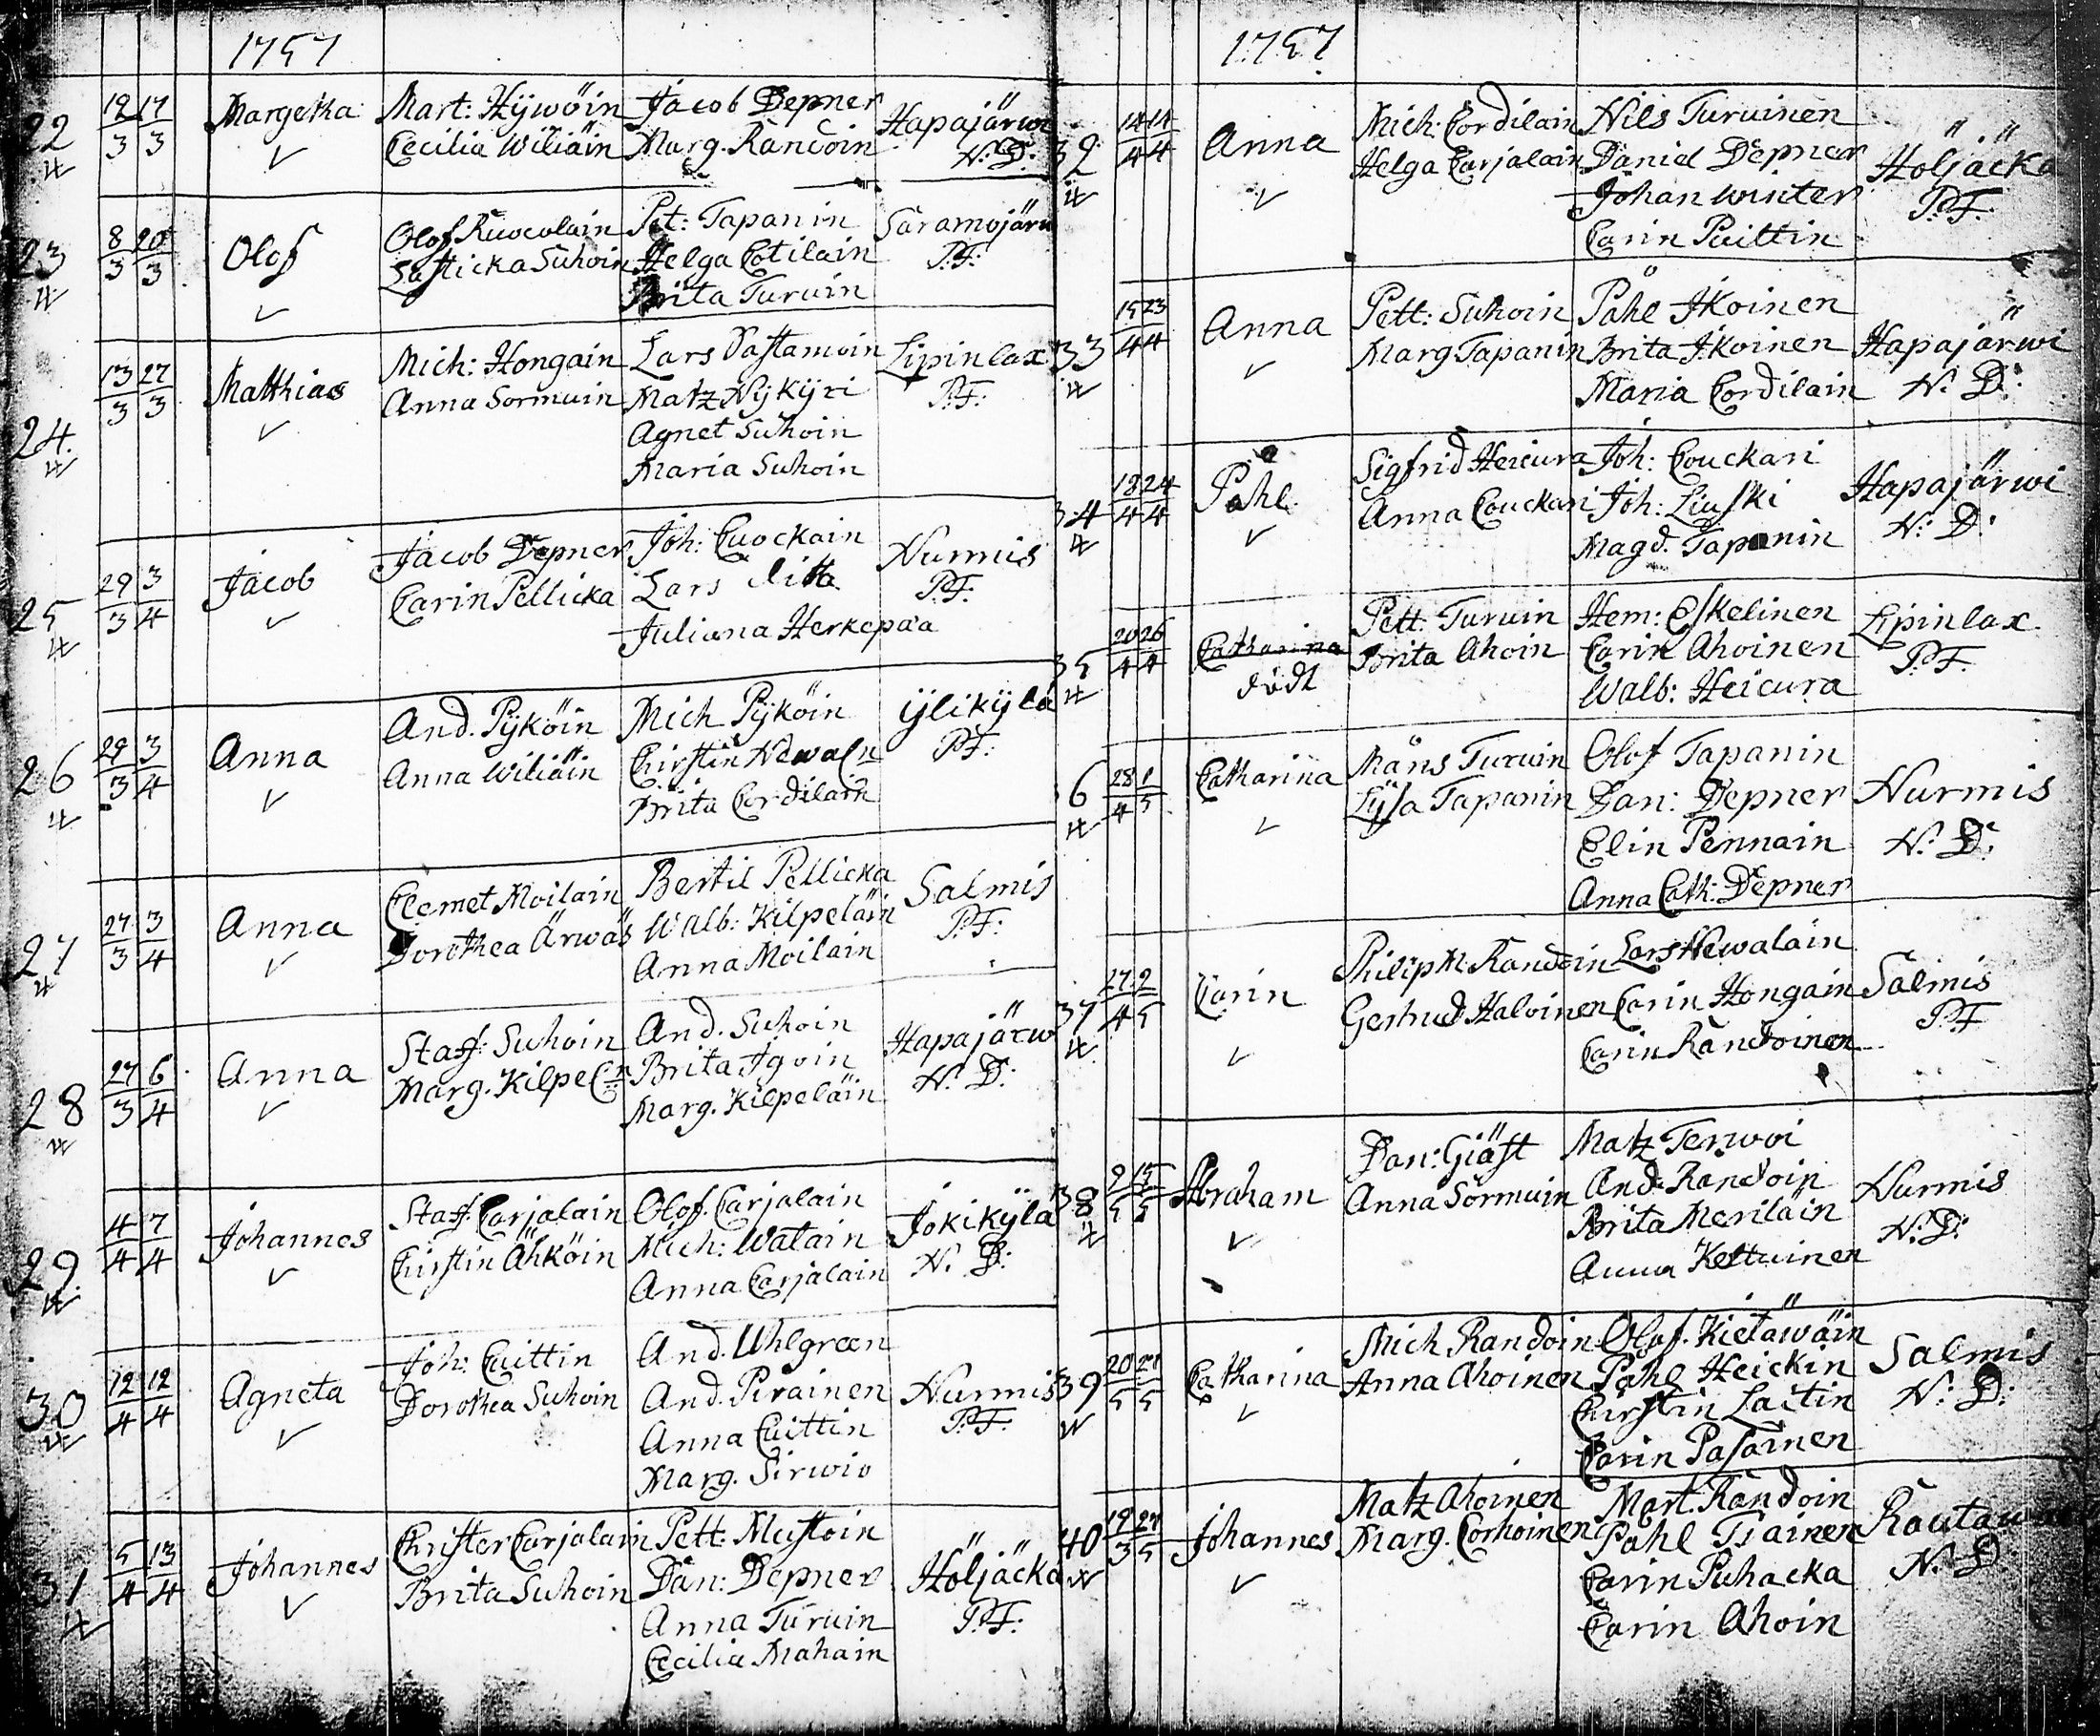 1757
22 12/3 17/3 Margetha Mart: Hÿwöin Jacob Depner Hapajärwi
Cecilia Wiliäin Marg. Randoin N: D:
23 8/3 20/3 Olof Olof Ruocolain Pet: Tapanin Saramojärw
Lasticka Suhoin Helga Cotilain P.F:
Brita Turuin
24. 13/3 27/3 Matthias Mich: Hongain Lars Vastamoin Lipinlax
Anna Sormuin Matz Nÿkÿri P.F:
Agnet Suhoin
Maria Suhoin
25 29/3 3/4 Jacob Jacob Depner Joh: Cuockain Nurmis
Carin Pellicka Lars ditto P.F:
Juliana Herkepää
26 29/3 3/4 Anna And. Pÿköin Mich Pÿköin ÿlikÿlä
Anna Wiliäin Chirstin Newaln P.F:
Brita Cordilain
27 27/3 3/4 Anna Clemet Moilain Bertil Pellicka Salmis
Dorothea Ärwäs Walb: Kilpeläin P.F:
Anna Moilain
28 27/3 6/4 Anna Staff: Suhoin And. Suhoin Hapajärw
Marg. Kilpeln Brita Igoin N. D:
Marg. Kilpeläin
29. 4/4 7/4 Johannes Staff. Carjalain Olof. Carjalain Jokikÿlä
Chirstin Ähköin Mich: Watain N. D:
Anna Carjalain
30 12/4 12/4 Agneta Joh: Cuittin And. Uhlgreen Nurmis
Dorothea Suhoin And. Pirainen P.F:
Anna Cuittin
Marg. Sirwiö
31 5/4 13/4 Johannes Christer Carjalain Pett: Mustoin Höljäckä
Brita Suhoin Dan: Depner P.F:
Anna Turuin
Cecilia Mahain
1757
32 14/4 14/4 Anna Mich: Cordilain Nils Turuinen Höljäckä
Helga Carjalain Daniel Depner P.F:
Johan Winter
Carin Puittin
33 15/4 23/4 Anna Pett: Suhoin Påhl Ikoinen Hapajärwi
Marg Tapanin Brita Ikoinen N. D:
Maria Cordilain
34 18/4 24/4 Påhl Sigfrid Heicura Joh: Couckari Hapajärwi
Anna Couckari Joh: Liuski N: D:
Magd. Tapanin
35 20/4 26/4 Catharina Pett: Turuin Hem: Eskelinen Lipinlax
dödt Brita Ahoin Carin Ahoinen P.F.
Walb: Heicura
6 28/4 1/5 Catharina Måns Turuin Olof Tapanin Nurmis
Lÿsa Tapanin Dan: Depner N: D:
Elin Pennain
Anna Cath: Depner
37 27/4 2/5 Carin Philip M. Randoin Lars Newalain Salmis
Gertrud Haloinen Carin Hongain P.F
Carin Randoinen
38 9/5 15/5 Abraham Dan: Giäst Matz Terwoi Nurmis
Anna Sormuin And: Randoin N: D:
Brita Meriläin
Anna Kettuinen
39 20/5 27/5 Catharina Mich Randoin Olof. Kietäwäin Salmis
Anna Ahoinen Påhl Heickin N: D:
Chirstin Laitin
Carin Pasainen
40 19/3 27/5 Johannes Matz Ahoinen Mart. Randoin Rautaw
Marg. Corhoinen Påhl Tiainen N. D:
Carin Puhacka
Carin Ahoin